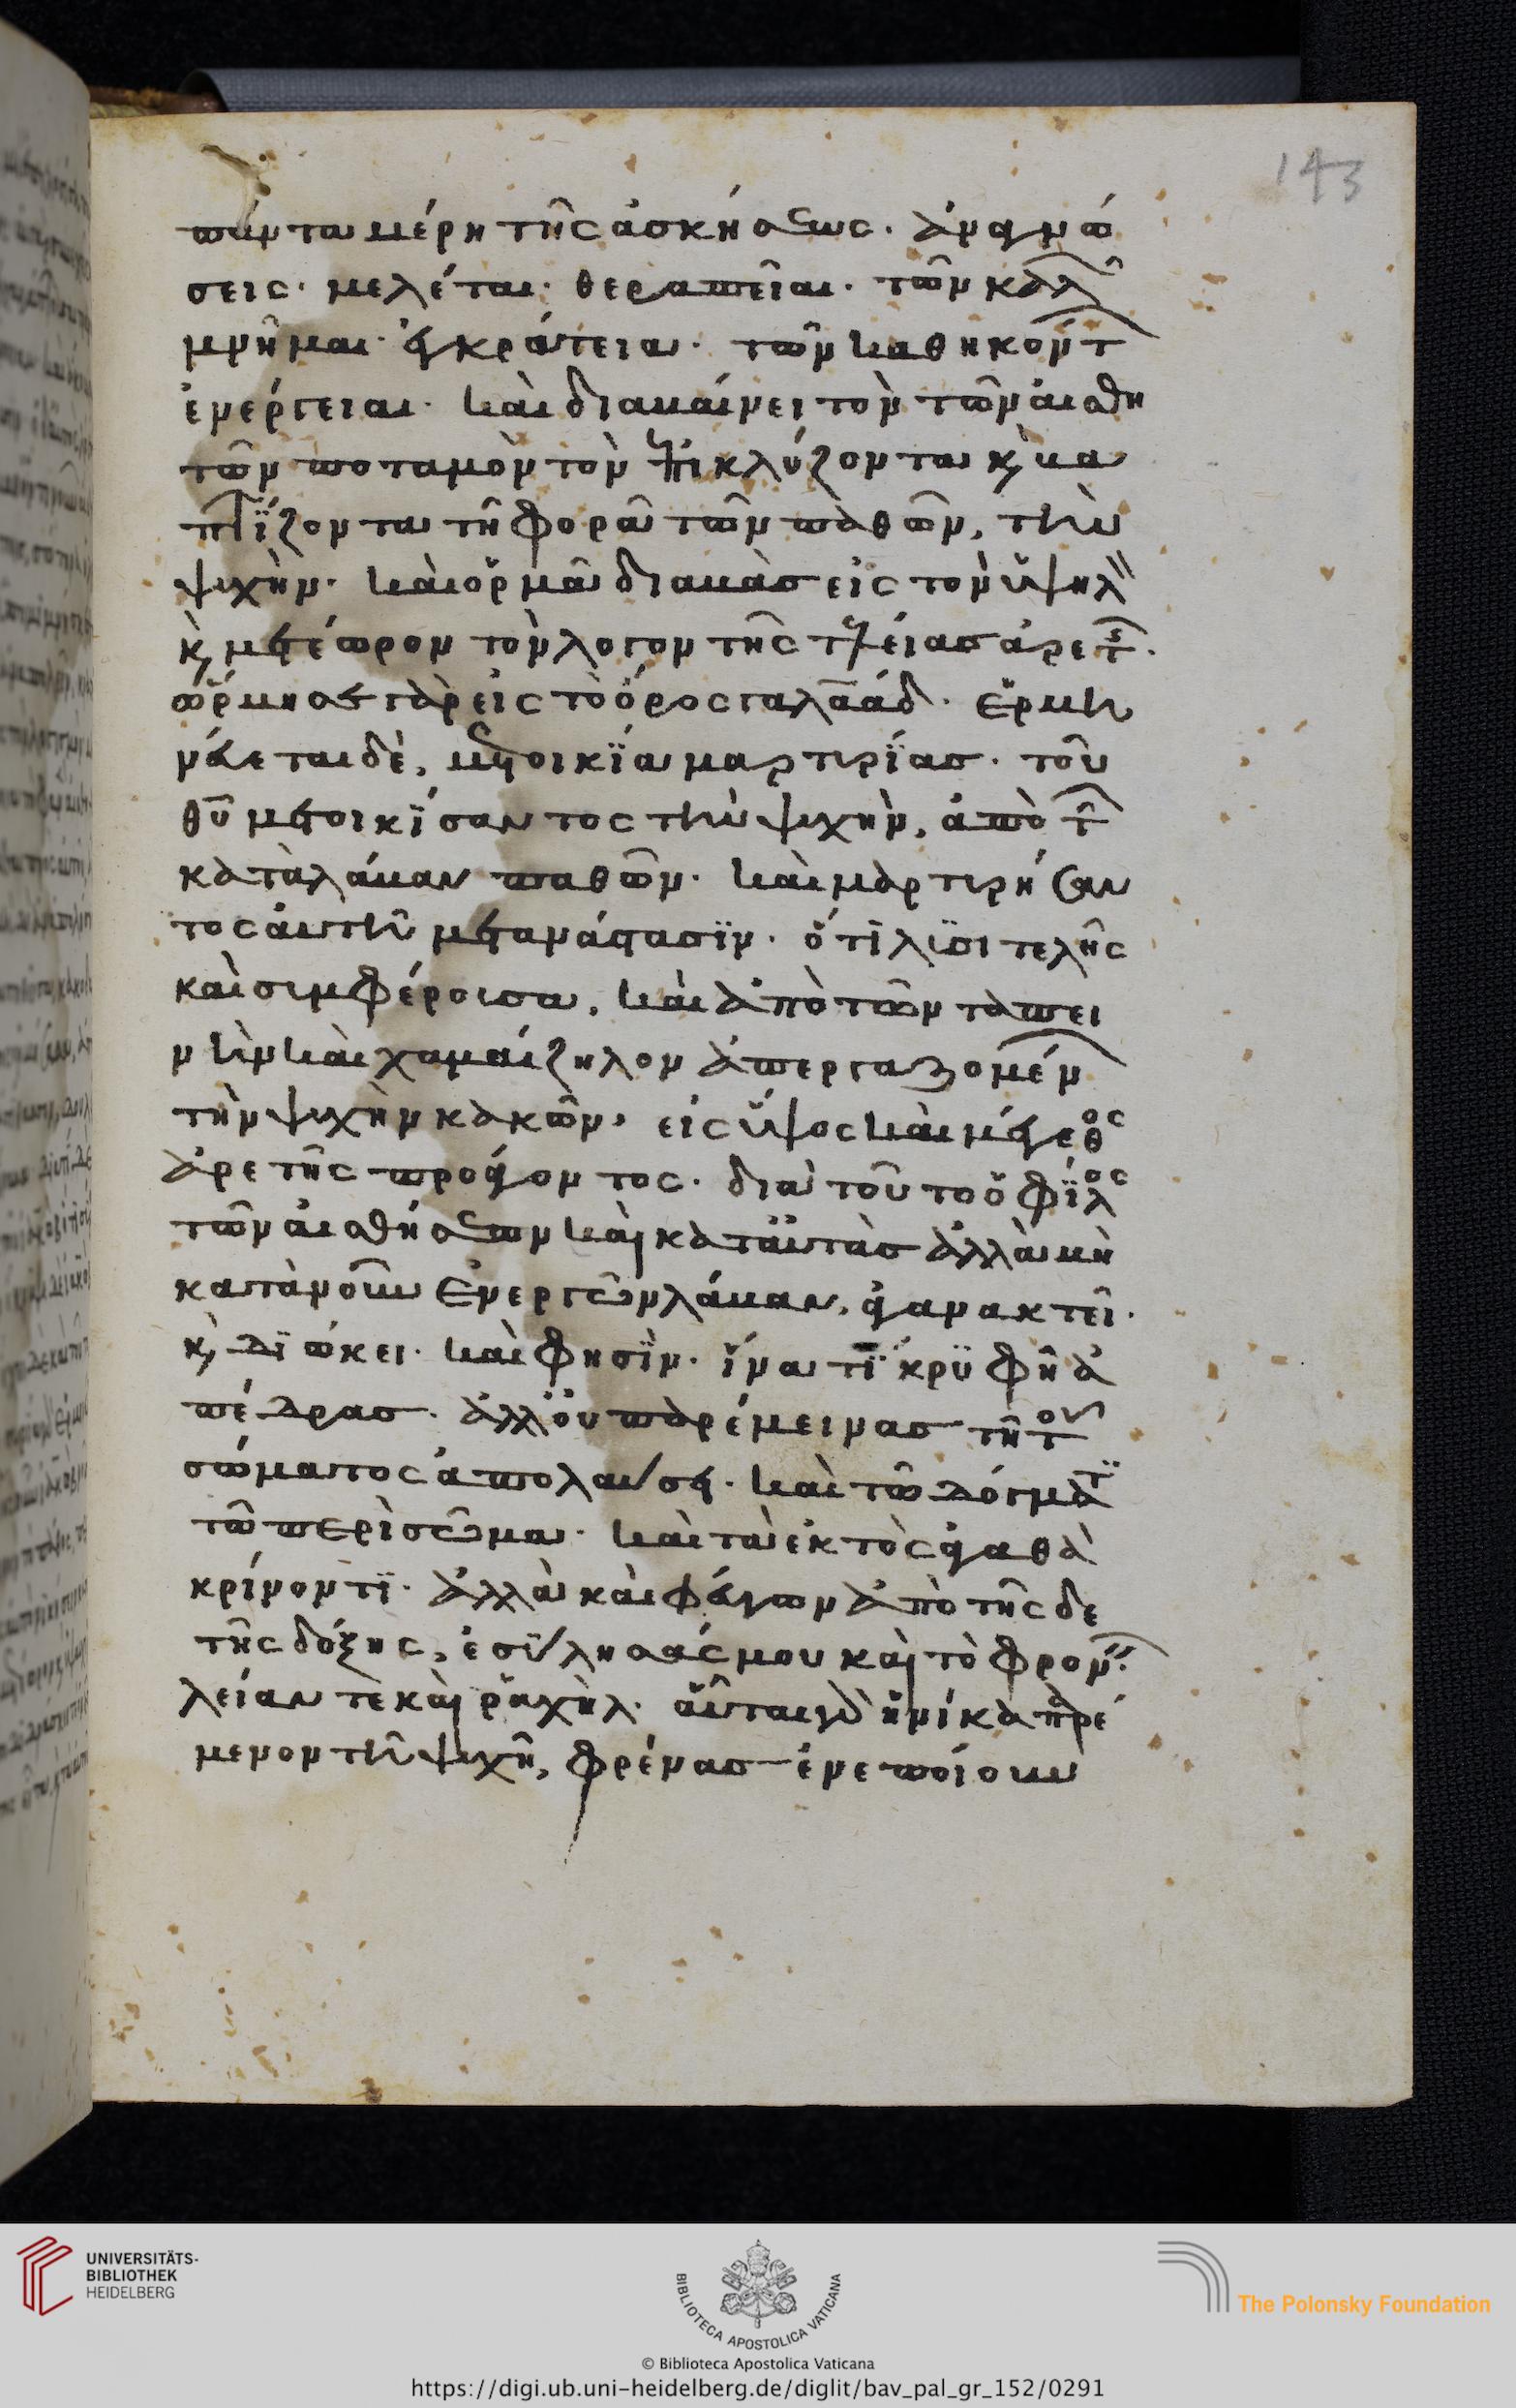 143
πάντα μέρη τῆς ἀσκήσεως· ἀναγνώ
σεις· μελέται· θεραπεῖαι· τῶν καλῶ
μνῆμαι· ἐγκράτεια· τῶν καθηκόντ
ἐνέργειαι· καὶ διαβαίνει τὸν τῶν αἰσθη
τῶν ποταμὸν τὸν ἐπικλύζοντα κ βα
πτΐζοντα τῆ φορᾶ τῶν παθῶν, τὴν
ψυχὴν· καὶ ὁρμᾶ διαβὰσ εἰς τὸν ὑψηλ
κ μετέωρον τὸν λόγον τῆς τελείασ ἀρετ.
ὥρμησε γὰρ εἰς τὸ ὄρος γαλαάδ· ἑρμη
νεύεται δὲ, μετοικΐα μαρτυρΐασ· τοῦ
θυ μετοικΐσαντος τὴν ψυχὴν, ἀπὸ τ
κατὰ λάβαν παθῶν· καὶ μαρτυρήσαν
τος αὐτῆ μετανάστασϊν· ὅτϊ λυσιτελῆς
καὶ συμφέρουσα, καὶ ἀπὸ τῶν ταπει
νὴν καὶ χαμαίζηλον ἀπεργαζομέν
τὴν ψυχὴν κακῶν, εἰς ὕψος καὶ μέγεθος
ἀρετῆς προάγοντος· διὰ τοῦτο ὁ φΐλος
τῶν αἰσθήσεων καὶ κατ' αὐτὰσ ἀλλὰ μὴ
κατὰ νοῦν ἐνεργῶν λάβαν, ἀγανακτεῖ·
κ δϊώκει· καὶ φησϊν· ἵνα τΐ κρϋφῆ ἀ
πέδρασ· ἀλλ' οὐ παρέμεινασ τῆ του
σώματος ἀπολαύσει· καὶ τῶ δόγματϊ
τῶ περὶ σῶμα· καὶ τὰ ἐκτὸς ἀγαθὰ
κρίνοντϊ· ἀλλὰ καὶ φεύγων ἀπὸ τῆς δε
τῆς δόξης, ἐσύλησάς μου καὶ τὸ φρον
λείαν τὲ καὶ ῥαχὴλ· αὗται γὰρ ἡνίκα παρέ
μενον τῆ ψυχῆ, φρένασ ἐνεποίουν
UNIVERSITÄTS-
BIBLIOTHEK
HEIDELBERG
BIBLIOTECA APOSTOLICA VATICANA
The Polonsky Foundation
© Biblioteca Apostolica Vaticana
https://digi.ub.uni-heidelberg.de/diglit/bav_pal_gr_152/0291